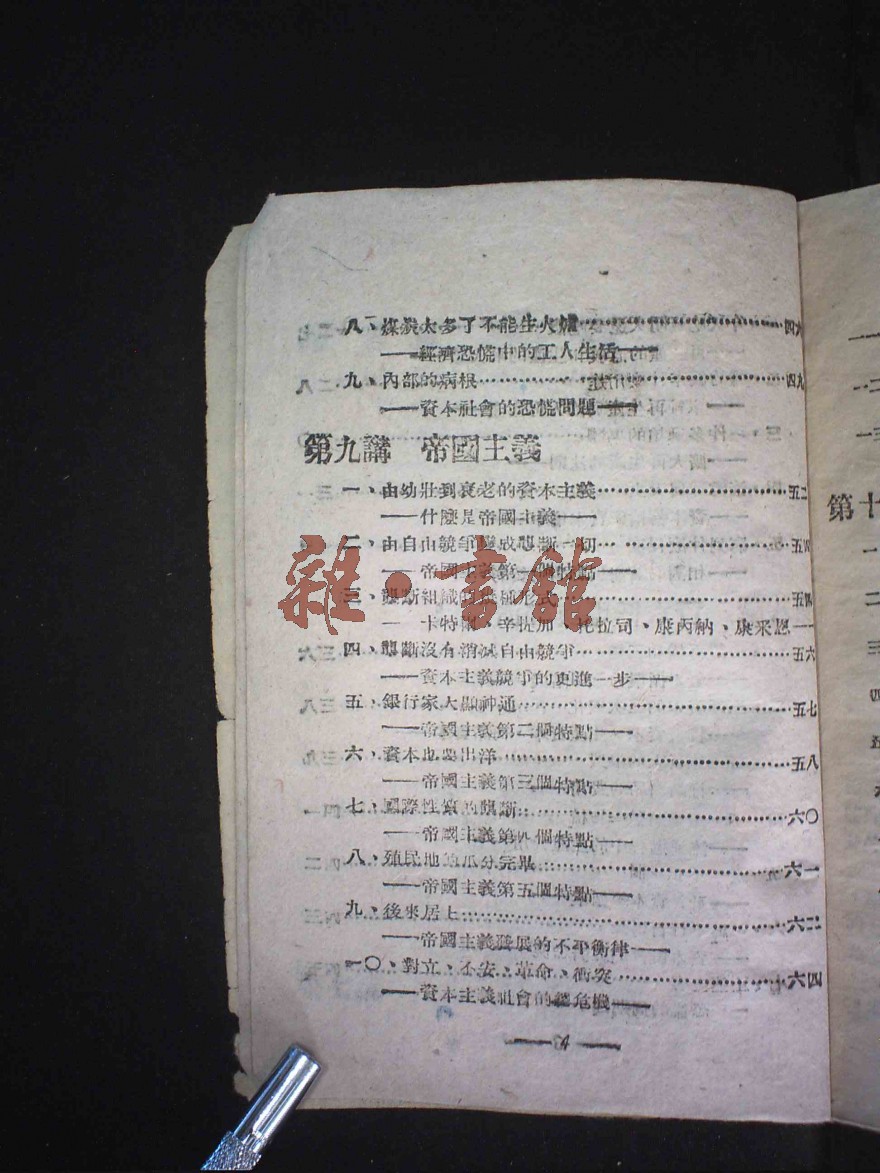 八、煤炭太多了不能生火爐……四六
——經濟恐慌中的工人生活——
九、內部的病根……四九
——資本社會的恐慌問題——
第九講 帝國主義
一、由幼壯到衰老的資本主義……五二
——什麼是帝國主義——
二、由自由競爭變成壟斷一切……五四
——帝國主義第一個特點——
三、壟斷組織的種形式……五四
—卡特爾、辛提加、托拉司、康丙納、康采恩—
四、壟斷沒有消滅自由競爭……五六
——資本主義競爭的更進一步——
五、銀行家大顯神通……五七
——帝國主義第二個特點——
六、資本也要出洋……五八
——帝國主義第三個特點——
七、國際性質的壟斷……六〇
——帝國主義第四個特點——
八、殖民地的瓜分完畢……六一
——帝國主義第五個特點——
九、後來居上……六二
——帝國主義發展的不平衡律——
一〇、對立、不安、革命、衝突……六四
——資本主義社會的總危機——
雜·書館
第十
一
二
三
四
五